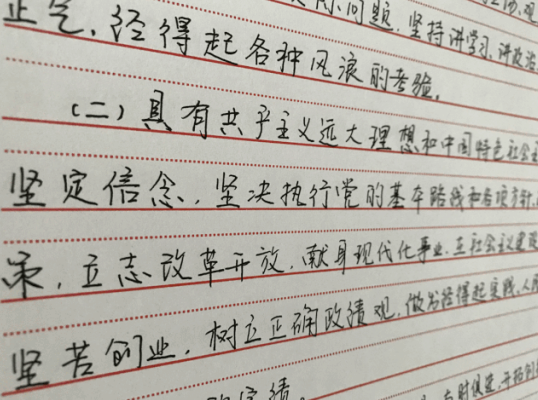 问题，坚持讲学习、讲政治
正气，经得起各种风浪的考验。
（二）具有共产主义远大理想和中国特色社会主
坚定信念，坚决执行党的基本路线和各项方针、
策，立志改革开放，献身现代化事业，在社会主义建设
坚苦创业，树立正确政绩观，做出经得起实践、人民
的实绩。
与时俱进，开拓创